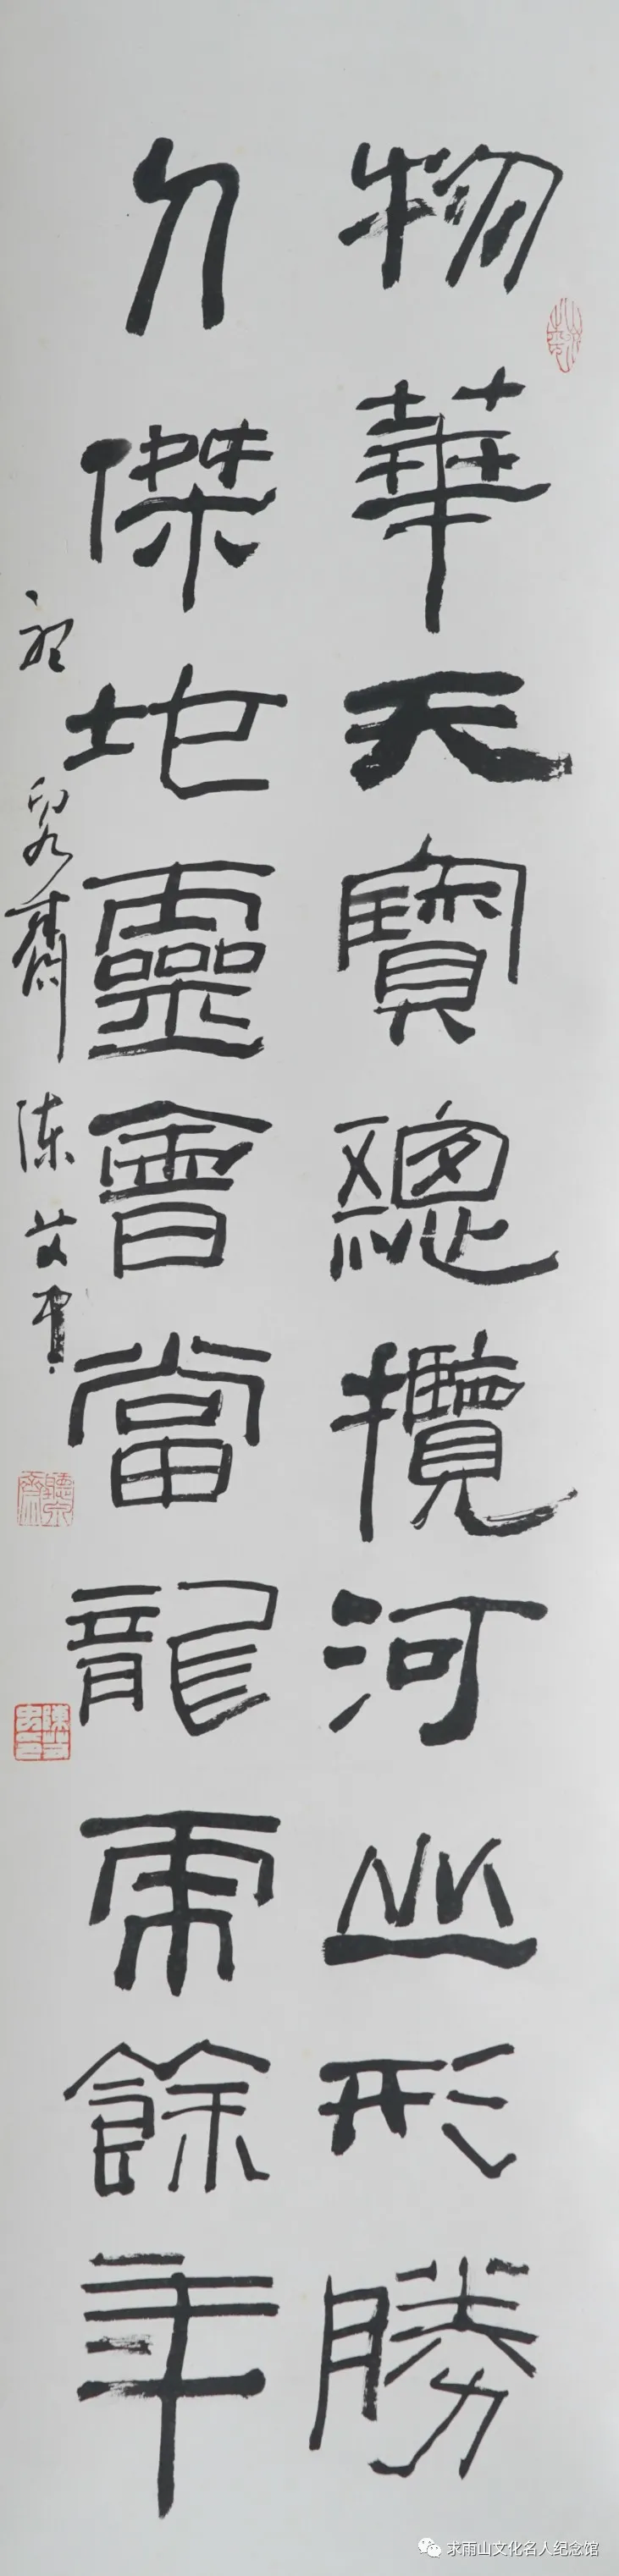 物華天寶總攬河山形勝
人傑地靈會當龍虎餘年
陳艾中
聽泉齋
求雨山文化名人纪念馆